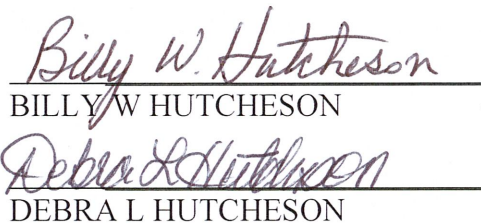 Billy W. Hutcheson
BILLY W HUTCHESON
Debra L Hutcheson
DEBRA L HUTCHESON